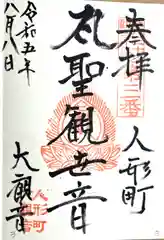 奉拝
三番
人形町
聖觀世音
令和五年
八月八日
大観音
人形町